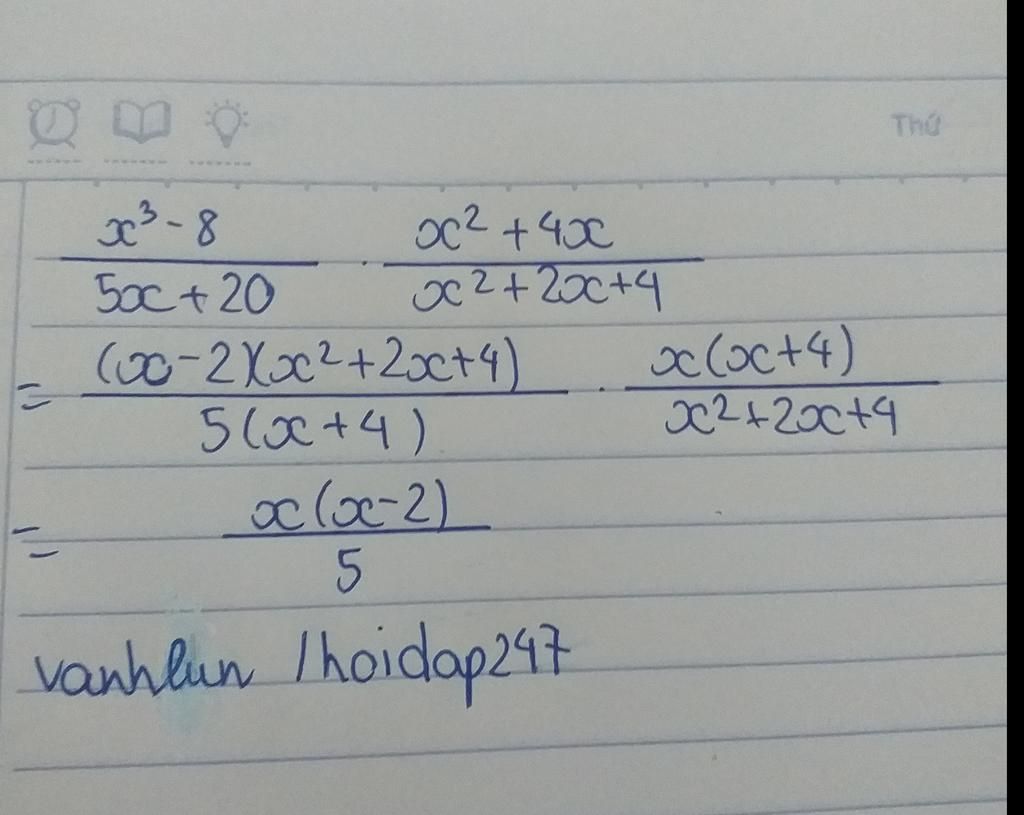 Thứ
x³ - 8 / 5x + 20 . x² + 4x / x² + 2x + 4
= (x - 2)(x² + 2x + 4) / 5(x + 4) . x(x + 4) / x² + 2x + 4
= x(x - 2) / 5
vanhlun /hoidap247